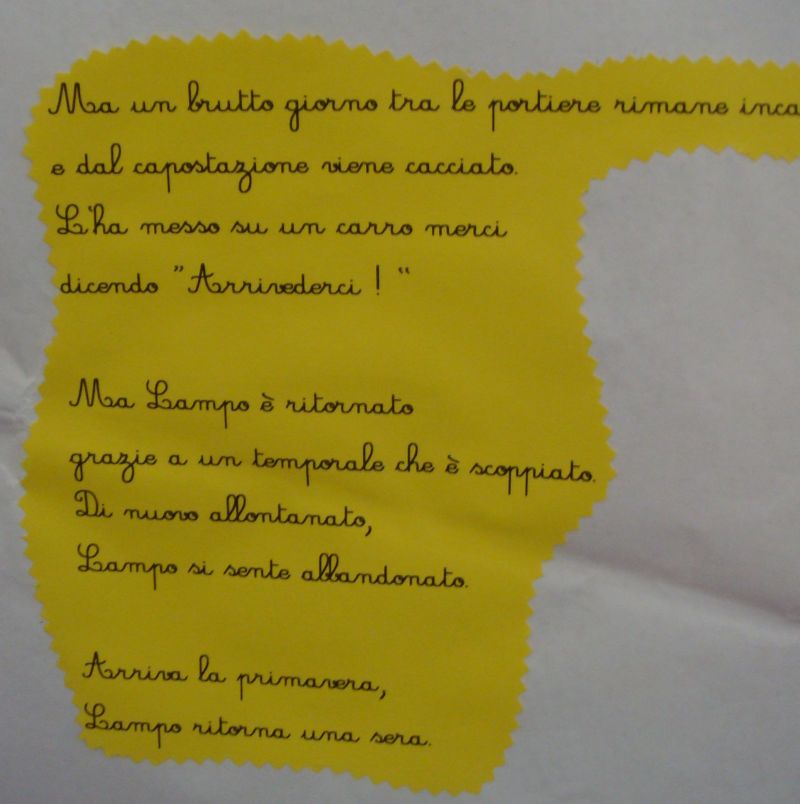 Ma un brutto giorno tra le portiere rimane inca
e dal capostazione viene cacciato.
L'ha messo su un carro merci
dicendo "Arrivederci ! "
Ma Lampo è ritornato
grazie a un temporale che è scoppiato.
Di nuovo allontanato,
Lampo si sente abbandonato.
Arriva la primavera,
Lampo ritorna una sera.